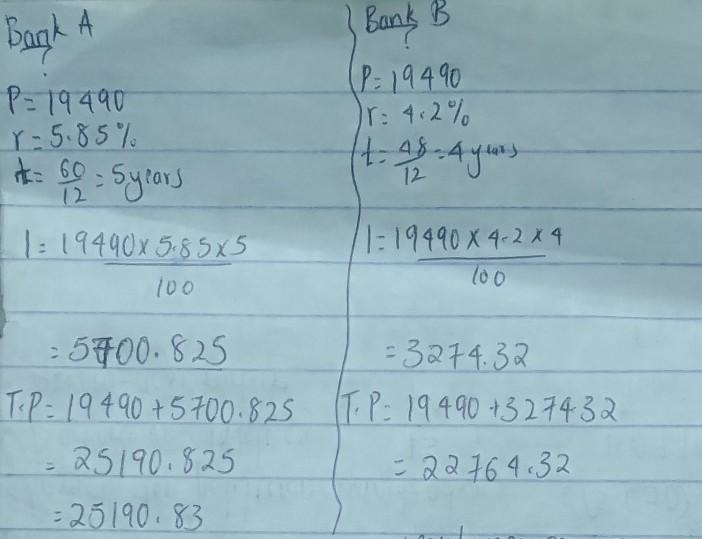 Bank A
?
P = 19490
r = 5.85%
t = 60/12 = 5 years
I = 19490 x 5.85 x 5
100
= 5700.825
T.P = 19490 + 5700.825
= 25190.825
= 25190.83
Bank B
?
P = 19490
r = 4.2%
t = 48/12 = 4 years
I = 19490 x 4.2 x 4
100
= 3274.32
T.P = 19490 + 327432
= 22764.32